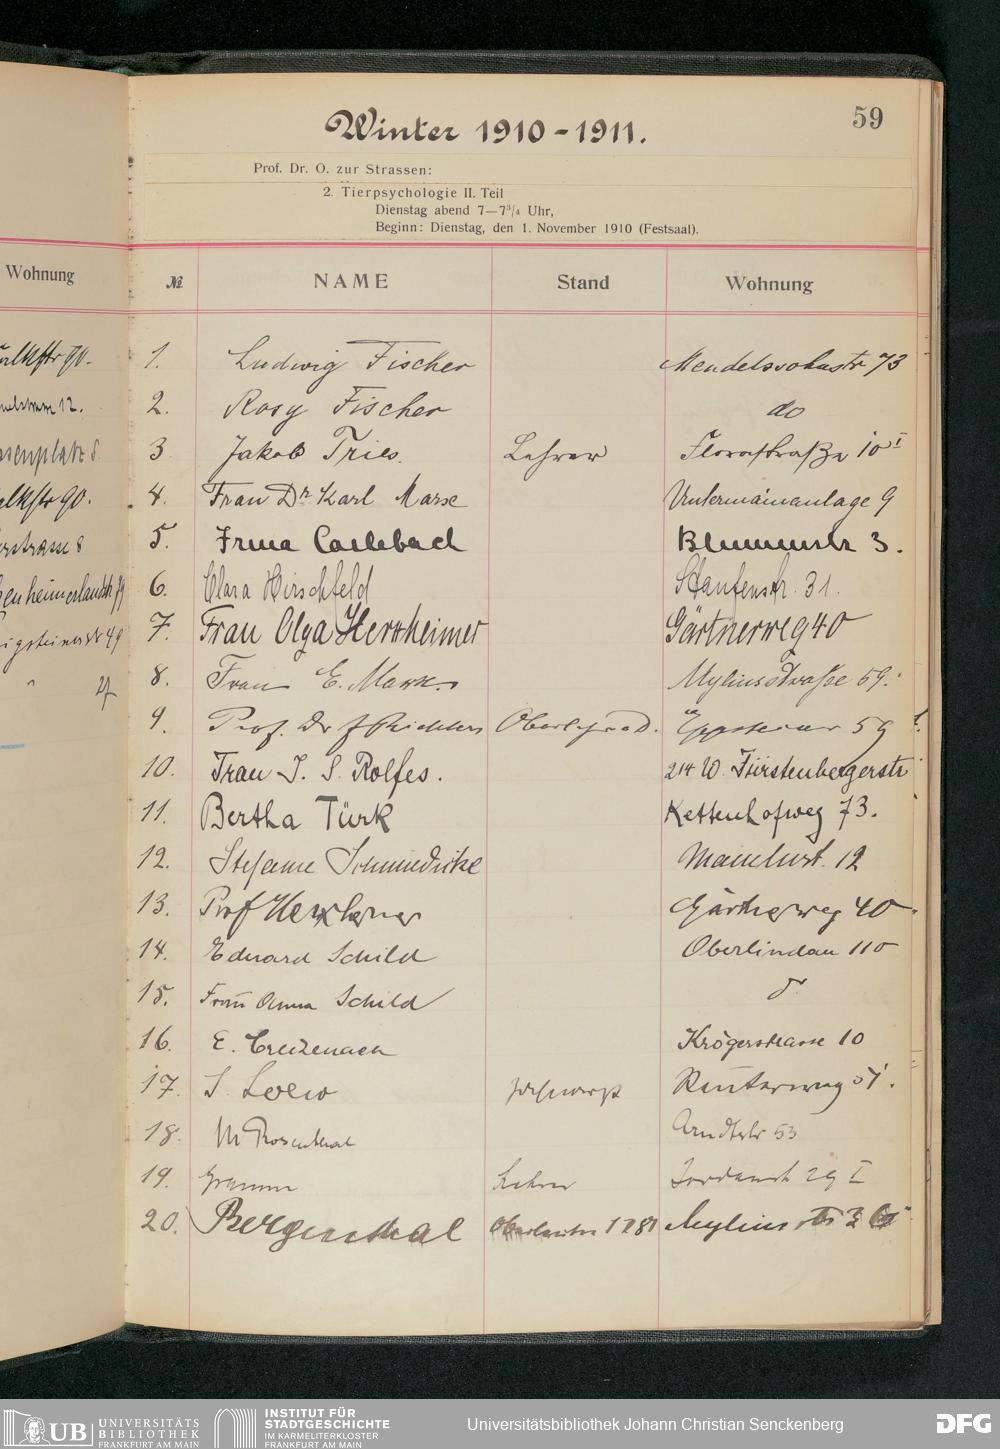 59
Winter 1910-1911.
Prof. Dr. O. zur Strassen:
2. Tierpsychologie II. Teil
Dienstag abend 7—7³/₄ Uhr,
Beginn: Dienstag, den 1. November 1910 (Festsaal).
Wohnung
№ NAME Stand Wohnung
1. Ludwig Fischer Mendelssohnstr 73
2. Rosy Fischer do
3. Jakob Tries. Lehrer Florastraße 10 I
4. Frau Dr. Karl Marse Untermainanlage 9
5. Irma Carlebach Blumenstr 3.
6. Clara Hirschfeld Staufenstr. 31.
7. Frau Olga Herxheimer Gärtnerweg 40
8. Frau E. Marx. Myliusstraße 59.
9. Prof. Dr. J Richters 59
10. Frau J. S. Rolfes. 214 W. Fürstenbergerstr
11. Bertha Türk Kettenhofweg 73.
12. Stefanie Schmiedicke Mainlust. 12
13. Prof Herxheimer Gärtnerweg 40
14. Eduard Schild Oberlindau 110
15. Frau Anna Schild
16. E. Creizenach Krögerstrasse 10
17. S. Loew Reuterweg 51.
18. M Rosenthal Arndtstr 53
19. Gramm Lehrer Jordanstr 29 I
20. Bergenthal Mylius
UB UNIVERSITÄTS
BIBLIOTHEK
FRANKFURT AM MAIN
INSTITUT FÜR
STADTGESCHICHTE
IM KARMELITERKLOSTER
FRANKFURT AM MAIN
Universitätsbibliothek Johann Christian Senckenberg
DFG